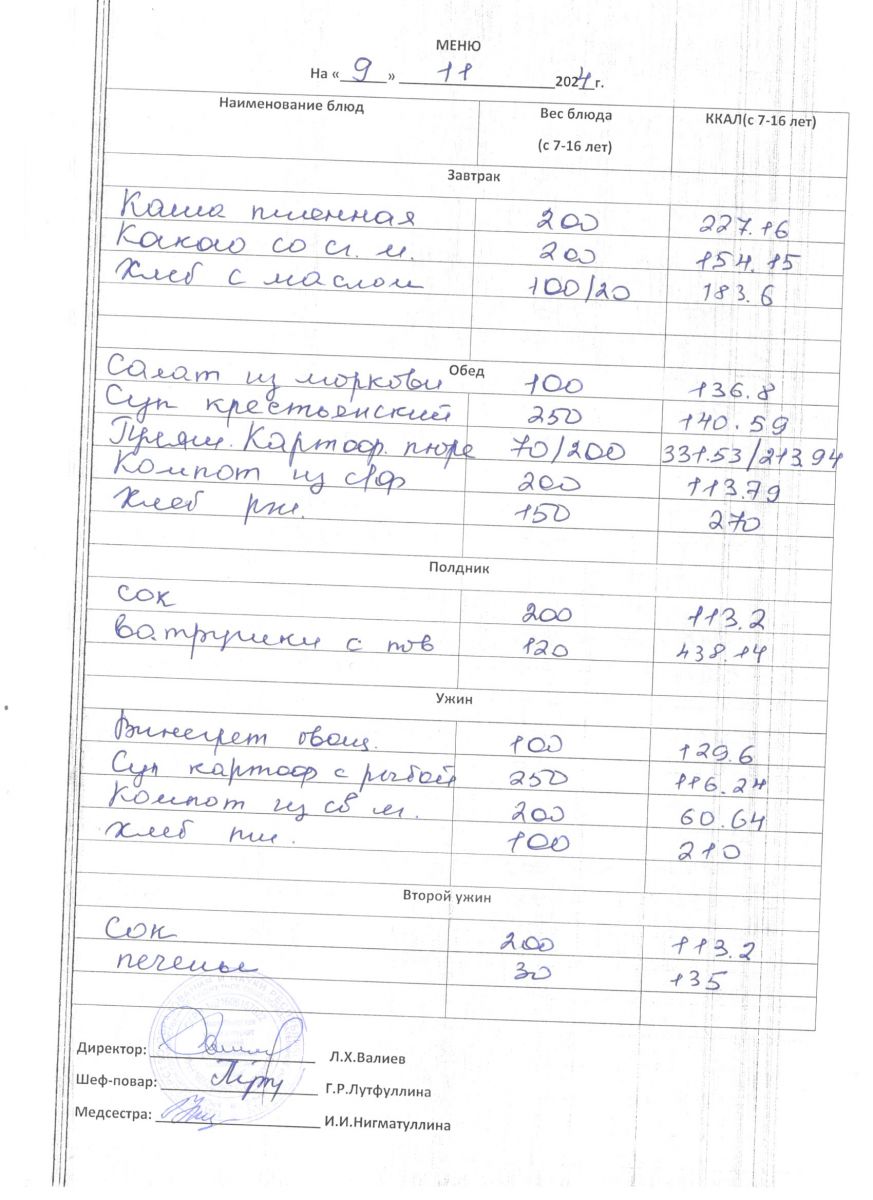 МЕНЮ
На «9» 11 2024г.
Наименование блюд Вес блюда (с 7-16 лет) ККАЛ(с 7-16 лет)
Завтрак
Каша пшенная 200 227.16
Какао со сг. м. 200 154.15
Хлеб с маслом 100/20 183.6
Обед
Салат из моркови 100 136.8
Суп крестьянский 250 140.59
Гуляш. Картоф. пюре 70/200 331.53/213.94
Компот из с/ф 200 113.79
Хлеб рж. 150 270
Полдник
Сок 200 113.2
Ватрушки с тв 120 438.14
Ужин
Винегрет овощ. 100 129.6
Суп картоф с рыбой 250 116.24
Компот из св м. 200 60.64
Хлеб пш. 100 210
Второй ужин
Сок 200 113.2
печенье 30 135
Директор: Л.Х.Валиев
Шеф-повар: Г.Р.Лутфуллина
Медсестра: И.И.Нигматуллина